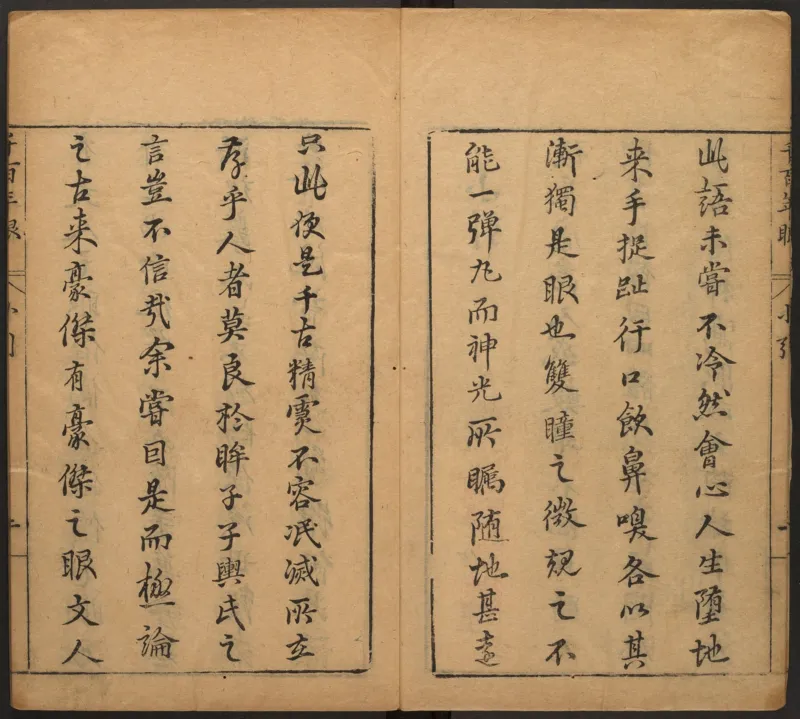 此語未嘗不冷然會心人生墮地
来手捉趾行口飲鼻嗅各以其
漸獨是眼也雙瞳之微覌之不
能一弹九而神光所矚随地甚遠
只此便是千古精靈不容泯滅所在
存乎人者莫良於眸子子輿氏之
言豈不信哉余嘗因是而極論
之古来豪傑有豪傑之眼文人